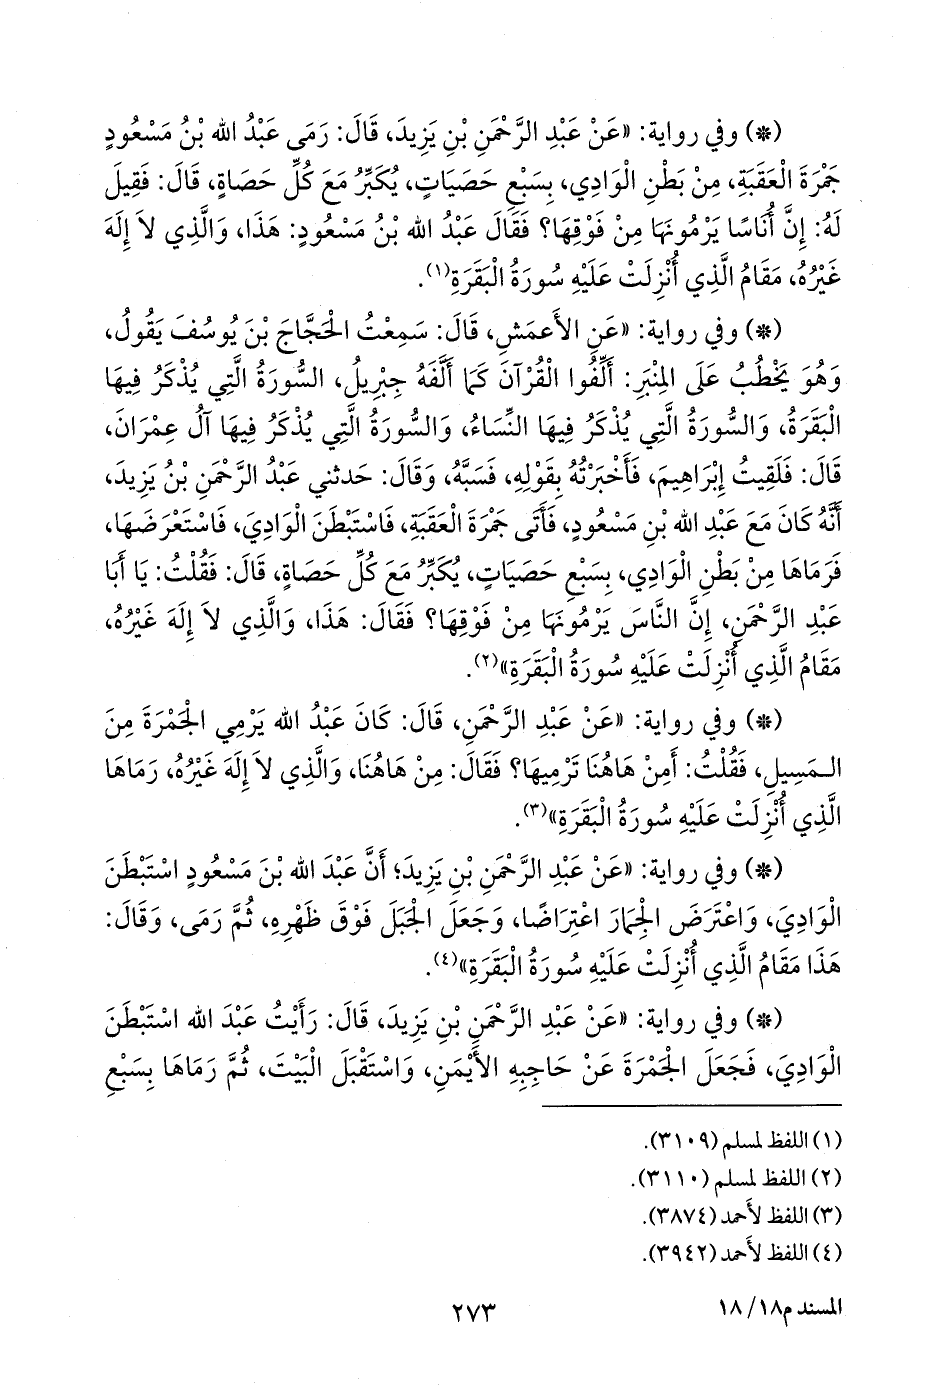 (*) وفي رواية: «عَنْ عَبْدِ الرَّحْمَنِ بْنِ يَزِيدَ، قَالَ: رَمَى عَبْدُ الله بْنُ مَسْعُودٍ
جَمْرَةَ الْعَقَبَةِ، مِنْ بَطْنِ الْوَادِي، بِسَبْعِ حَصَيَاتٍ، يُكَبِّرُ مَعَ كُلِّ حَصَاةٍ، قَالَ: فَقِيلَ
لَهُ: إِنَّ أُنَاسًا يَرْمُونَهَا مِنْ فَوْقِهَا؟ فَقَالَ عَبْدُ الله بْنُ مَسْعُودٍ: هَذَا، وَالَّذِي لاَ إِلَهَ
غَيْرُهُ، مَقَامُ الَّذِي أُنْزِلَتْ عَلَيْهِ سُورَةُ الْبَقَرَةِ(١).
(*) وفي رواية: «عَنِ الأَعمَشِ، قَالَ: سَمِعْتُ الْحَجَّاجَ بْنَ يُوسُفَ يَقُولُ،
وَهُوَ يَخْطُبُ عَلَى المِنْبَرِ: أَلِّفُوا الْقُرْآنَ كَمَا أَلَّفَهُ جِبْرِيلُ، السُّورَةُ الَّتِي يُذْكَرُ فِيهَا
الْبَقَرَةُ، وَالسُّورَةُ الَّتِي يُذْكَرُ فِيهَا النِّسَاءُ، وَالسُّورَةُ الَّتِي يُذْكَرُ فِيهَا آلُ عِمْرَانَ،
قَالَ: فَلَقِيتُ إِبْرَاهِيمَ، فَأَخْبَرْتُهُ بِقَوْلِهِ، فَسَبَّهُ، وَقَالَ: حَدثني عَبْدُ الرَّحْمَنِ بْنُ يَزِيدَ،
أَنَّهُ كَانَ مَعَ عَبْدِ الله بْنِ مَسْعُودٍ، فَأَتَى جَمْرَةَ الْعَقَبَةِ، فَاسْتَبْطَنَ الْوَادِيَ، فَاسْتَعْرَضَهَا،
فَرَمَاهَا مِنْ بَطْنِ الْوَادِي، بِسَبْعِ حَصَيَاتٍ، يُكَبِّرُ مَعَ كُلِّ حَصَاةٍ، قَالَ: فَقُلْتُ: يَا أَبَا
عَبْدِ الرَّحْمَنِ، إِنَّ النَّاسَ يَرْمُونَهَا مِنْ فَوْقِهَا؟ فَقَالَ: هَذَا، وَالَّذِي لاَ إِلَهَ غَيْرُهُ،
مَقَامُ الَّذِي أُنْزِلَتْ عَلَيْهِ سُورَةُ الْبَقَرَةِ»(٢).
(*) وفي رواية: «عَنْ عَبْدِ الرَّحْمَنِ، قَالَ: كَانَ عَبْدُ الله يَرْمِي الْجَمْرَةَ مِنَ
الـمَسِيلِ، فَقُلْتُ: أَمِنْ هَاهُنَا تَرْمِيهَا؟ فَقَالَ: مِنْ هَاهُنَا، وَالَّذِي لاَ إِلَهَ غَيْرُهُ، رَمَاهَا
الَّذِي أُنْزِلَتْ عَلَيْهِ سُورَةُ الْبَقَرَةِ»(٣).
(*) وفي رواية: «عَنْ عَبْدِ الرَّحْمَنِ بْنِ يَزِيدَ؛ أَنَّ عَبْدَ الله بْنَ مَسْعُودٍ اسْتَبْطَنَ
الْوَادِيَ، وَاعْتَرَضَ الْجِمَارَ اعْتِرَاضًا، وَجَعَلَ الْجَبَلَ فَوْقَ ظَهْرِهِ، ثُمَّ رَمَى، وَقَالَ:
هَذَا مَقَامُ الَّذِي أُنْزِلَتْ عَلَيْهِ سُورَةُ الْبَقَرَةِ»(٤).
(*) وفي رواية: «عَنْ عَبْدِ الرَّحْمَنِ بْنِ يَزِيدَ، قَالَ: رَأَيْتُ عَبْدَ الله اسْتَبْطَنَ
الْوَادِيَ، فَجَعَلَ الْجَمْرَةَ عَنْ حَاجِبِهِ الأَيْمَنِ، وَاسْتَقْبَلَ الْبَيْتَ، ثُمَّ رَمَاهَا بِسَبْعِ
(١) اللفظ لمسلم (٣١٠٩).
(٢) اللفظ لمسلم (٣١١٠).
(٣) اللفظ لأحمد (٣٨٧٤).
(٤) اللفظ لأحمد (٣٩٤٢).
المسند م١٨/ ١٨
٢٧٣